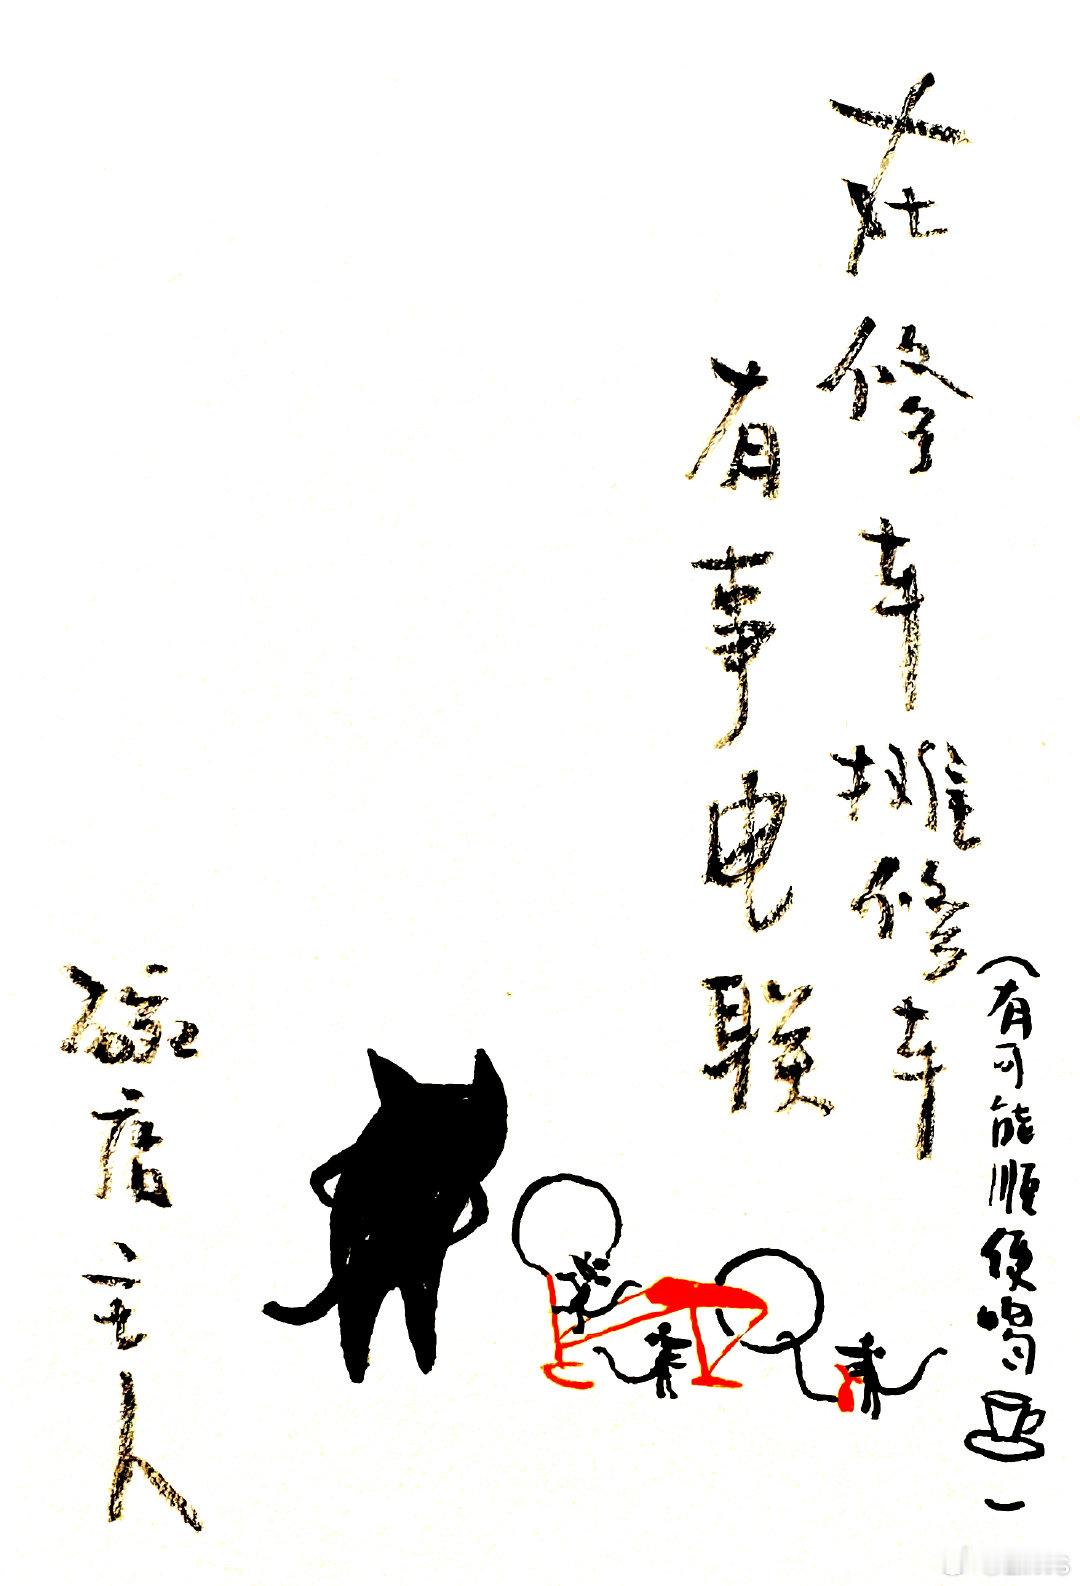 在修车摊修车
(有可能顺便喝)
有事电联
碗店主人